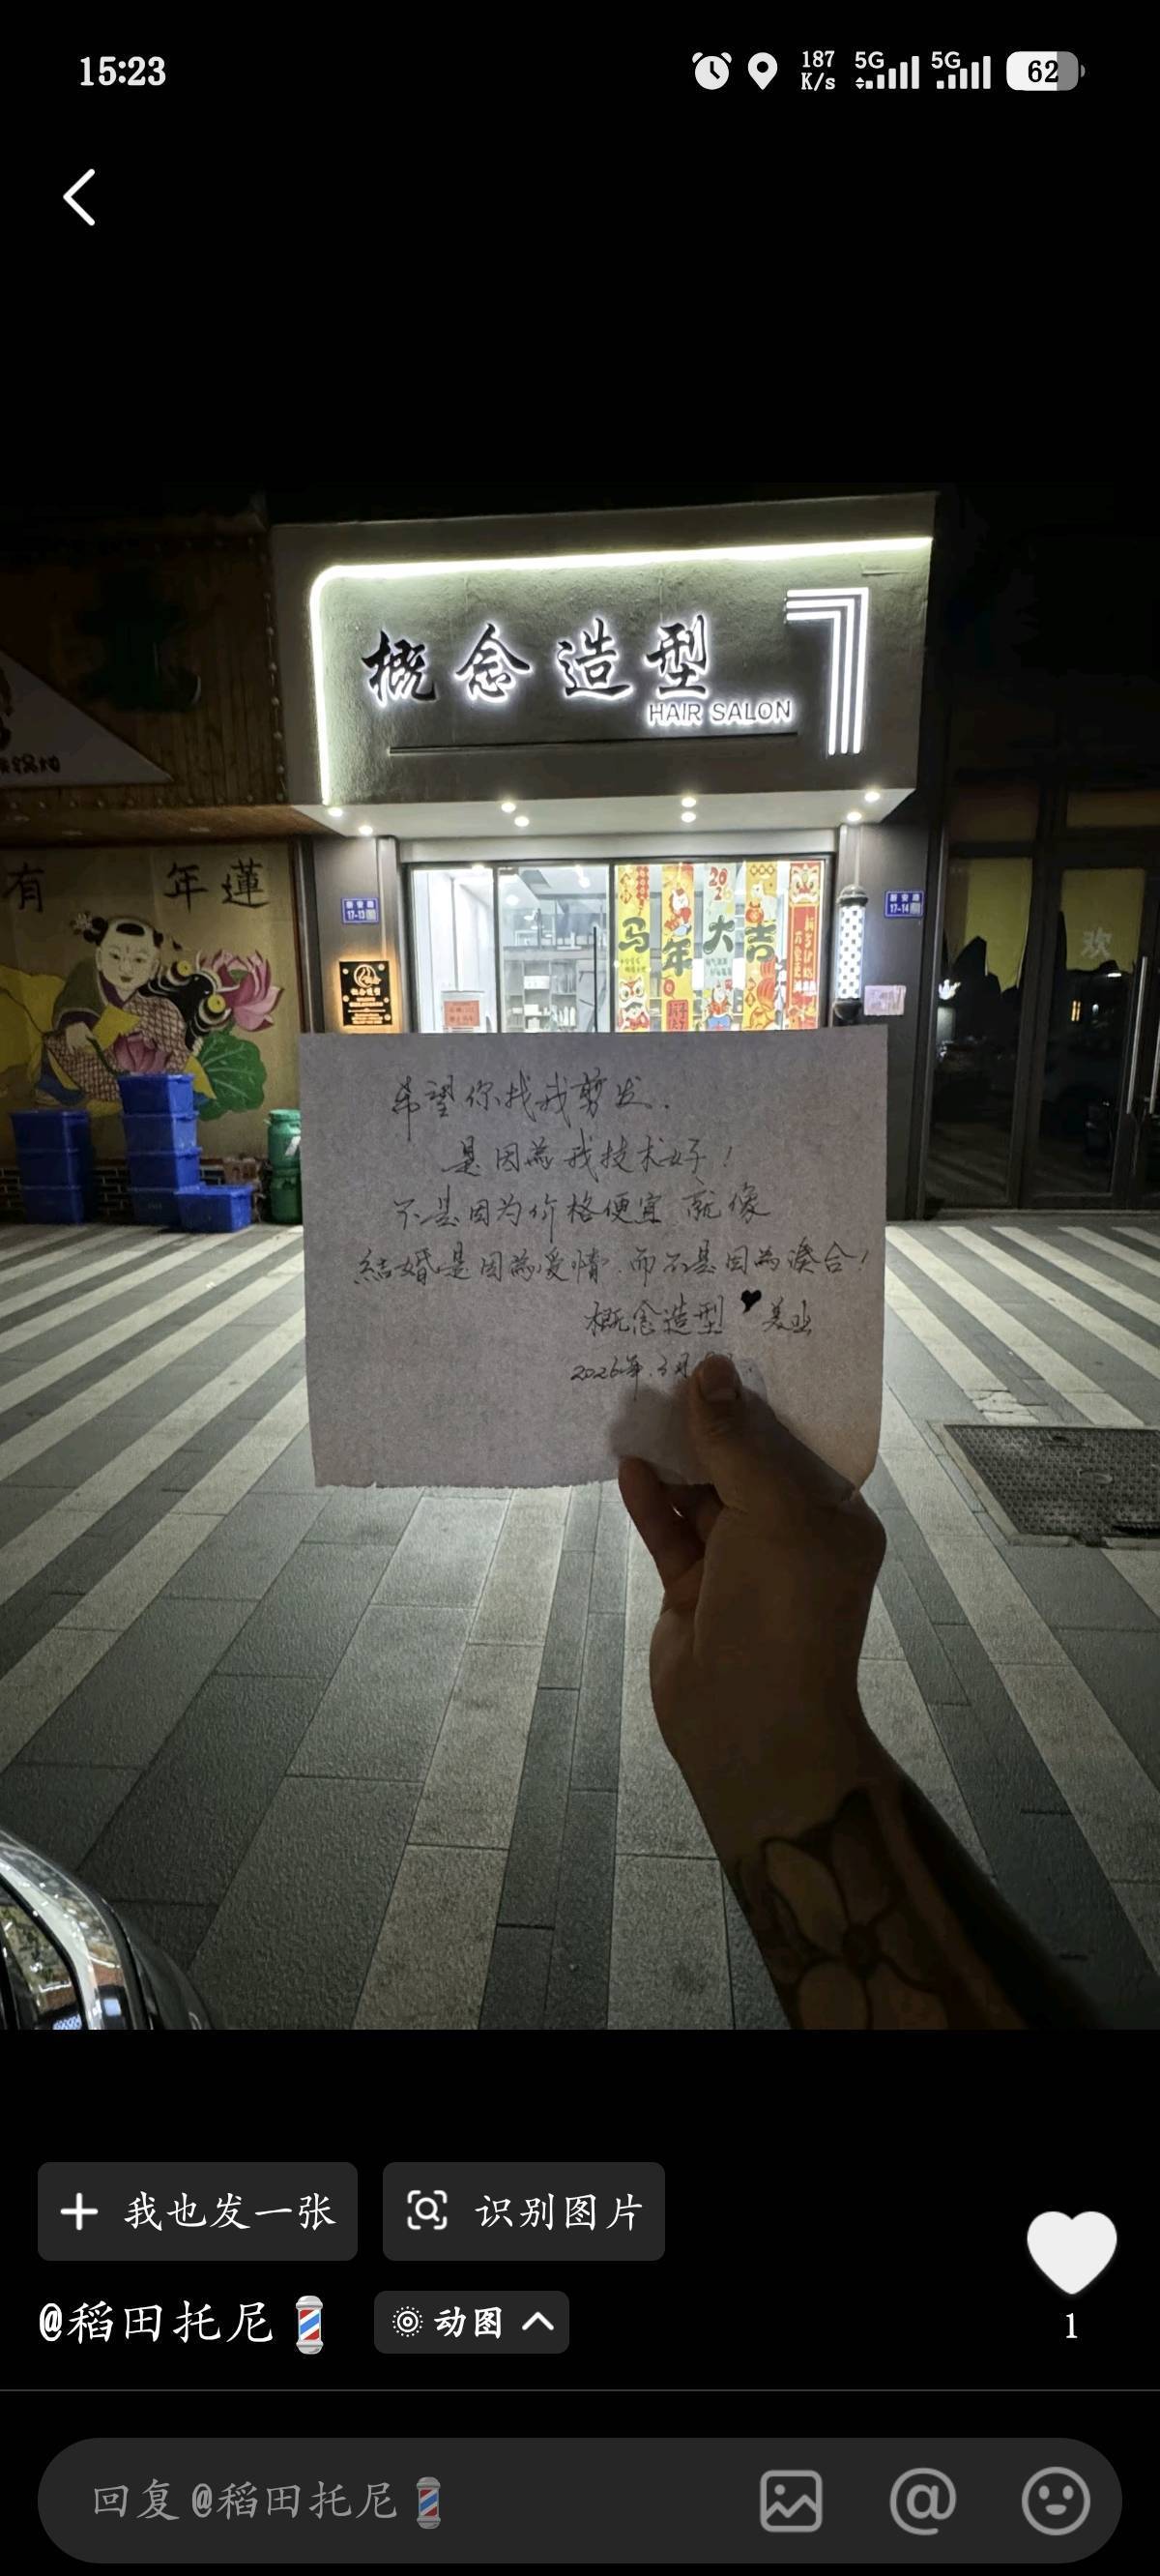 15:23
187
K/s
5G
5G
62
概念造型
HAIR SALON
有 年蓮
17-13
17-14
马年大吉
欢
希望你找我剪发.
是因為我技术好!
不是因为价格便宜 就像
結婚是因為爱情.而不是因為凑合!
概念造型♥美业
2026年.3月
我也发一张
识别图片
@稻田托尼💈
动图
1
回复 @稻田托尼💈